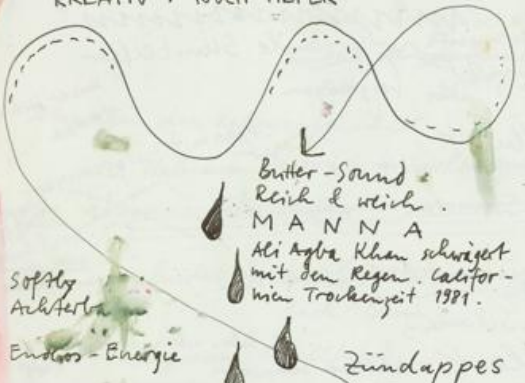 KREATIV + NOCH TIEFER
Butter-Sound
Reich & weich.
MANNA
Ali Agba Khan schwägert
mit dem Regen. Califor-
nien Trockenzeit 1981.
Softly
Achterba
Endlos-Energie
Zündappes